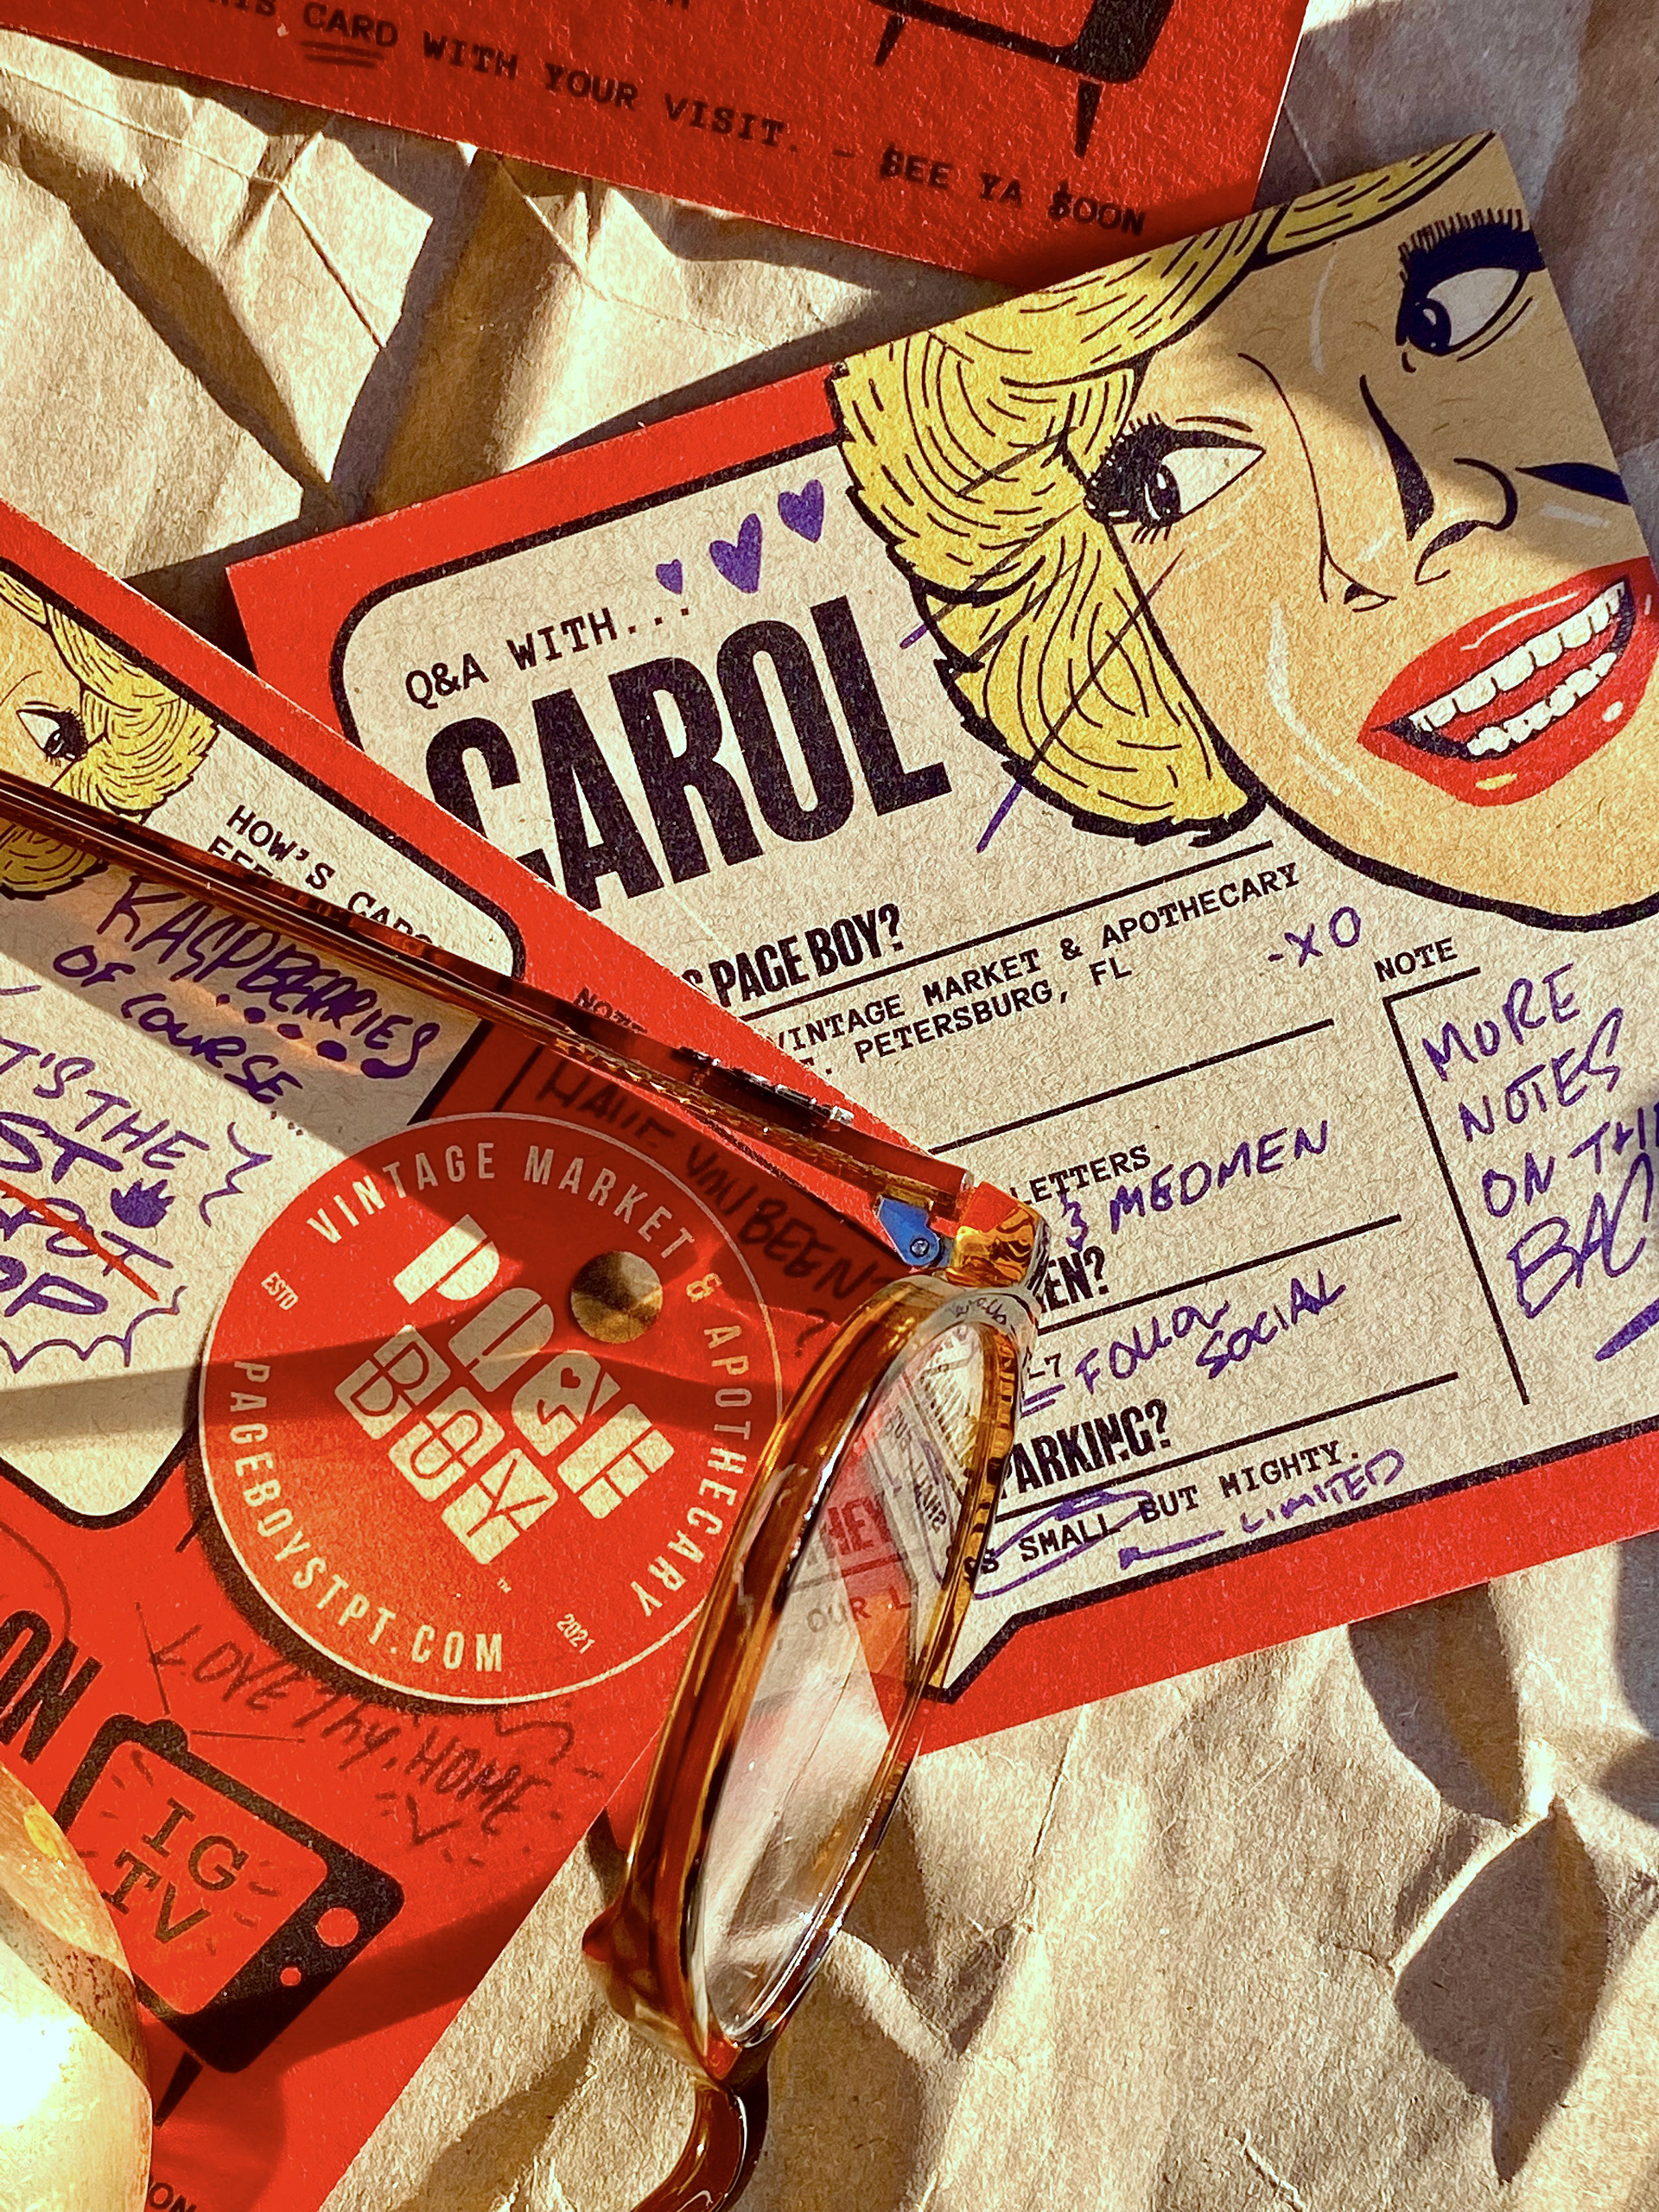 CARD WITH YOUR VISIT. - SEE YA $OON
Q&A WITH...
CAROL
PAGE BOY?
VINTAGE MARKET & APOTHECARY
PETERSBURG, FL
-XO
NOTE
MORE
NOTES
ON THIS
LETTERS
& MEDMEN
-7
FOLLOW
SOCIAL
PARKING?
SMALL BUT MIGHTY.
LIMITED
HOW'S CAROL
RASPBERRIES
OF COURSE
NOTE
HAVE YOU BEEN
?
IT'S THE
VINTAGE MARKET & APOTHECARY
ESTD
PAGE
BOY
™
2021
PAGEBOYSTPT.COM
OUR
LOVE Thy, HOME
IG
TV
ON